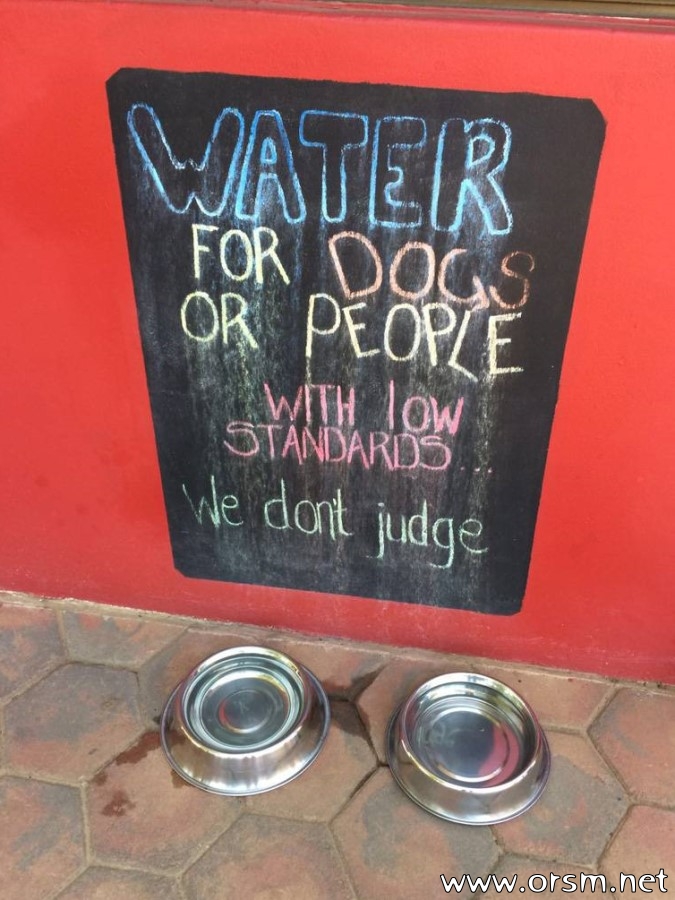 WATER
FOR DOGS
OR PEOPLE
WITH lOW
STANDARDS...
We don't judge
www.orsm.net